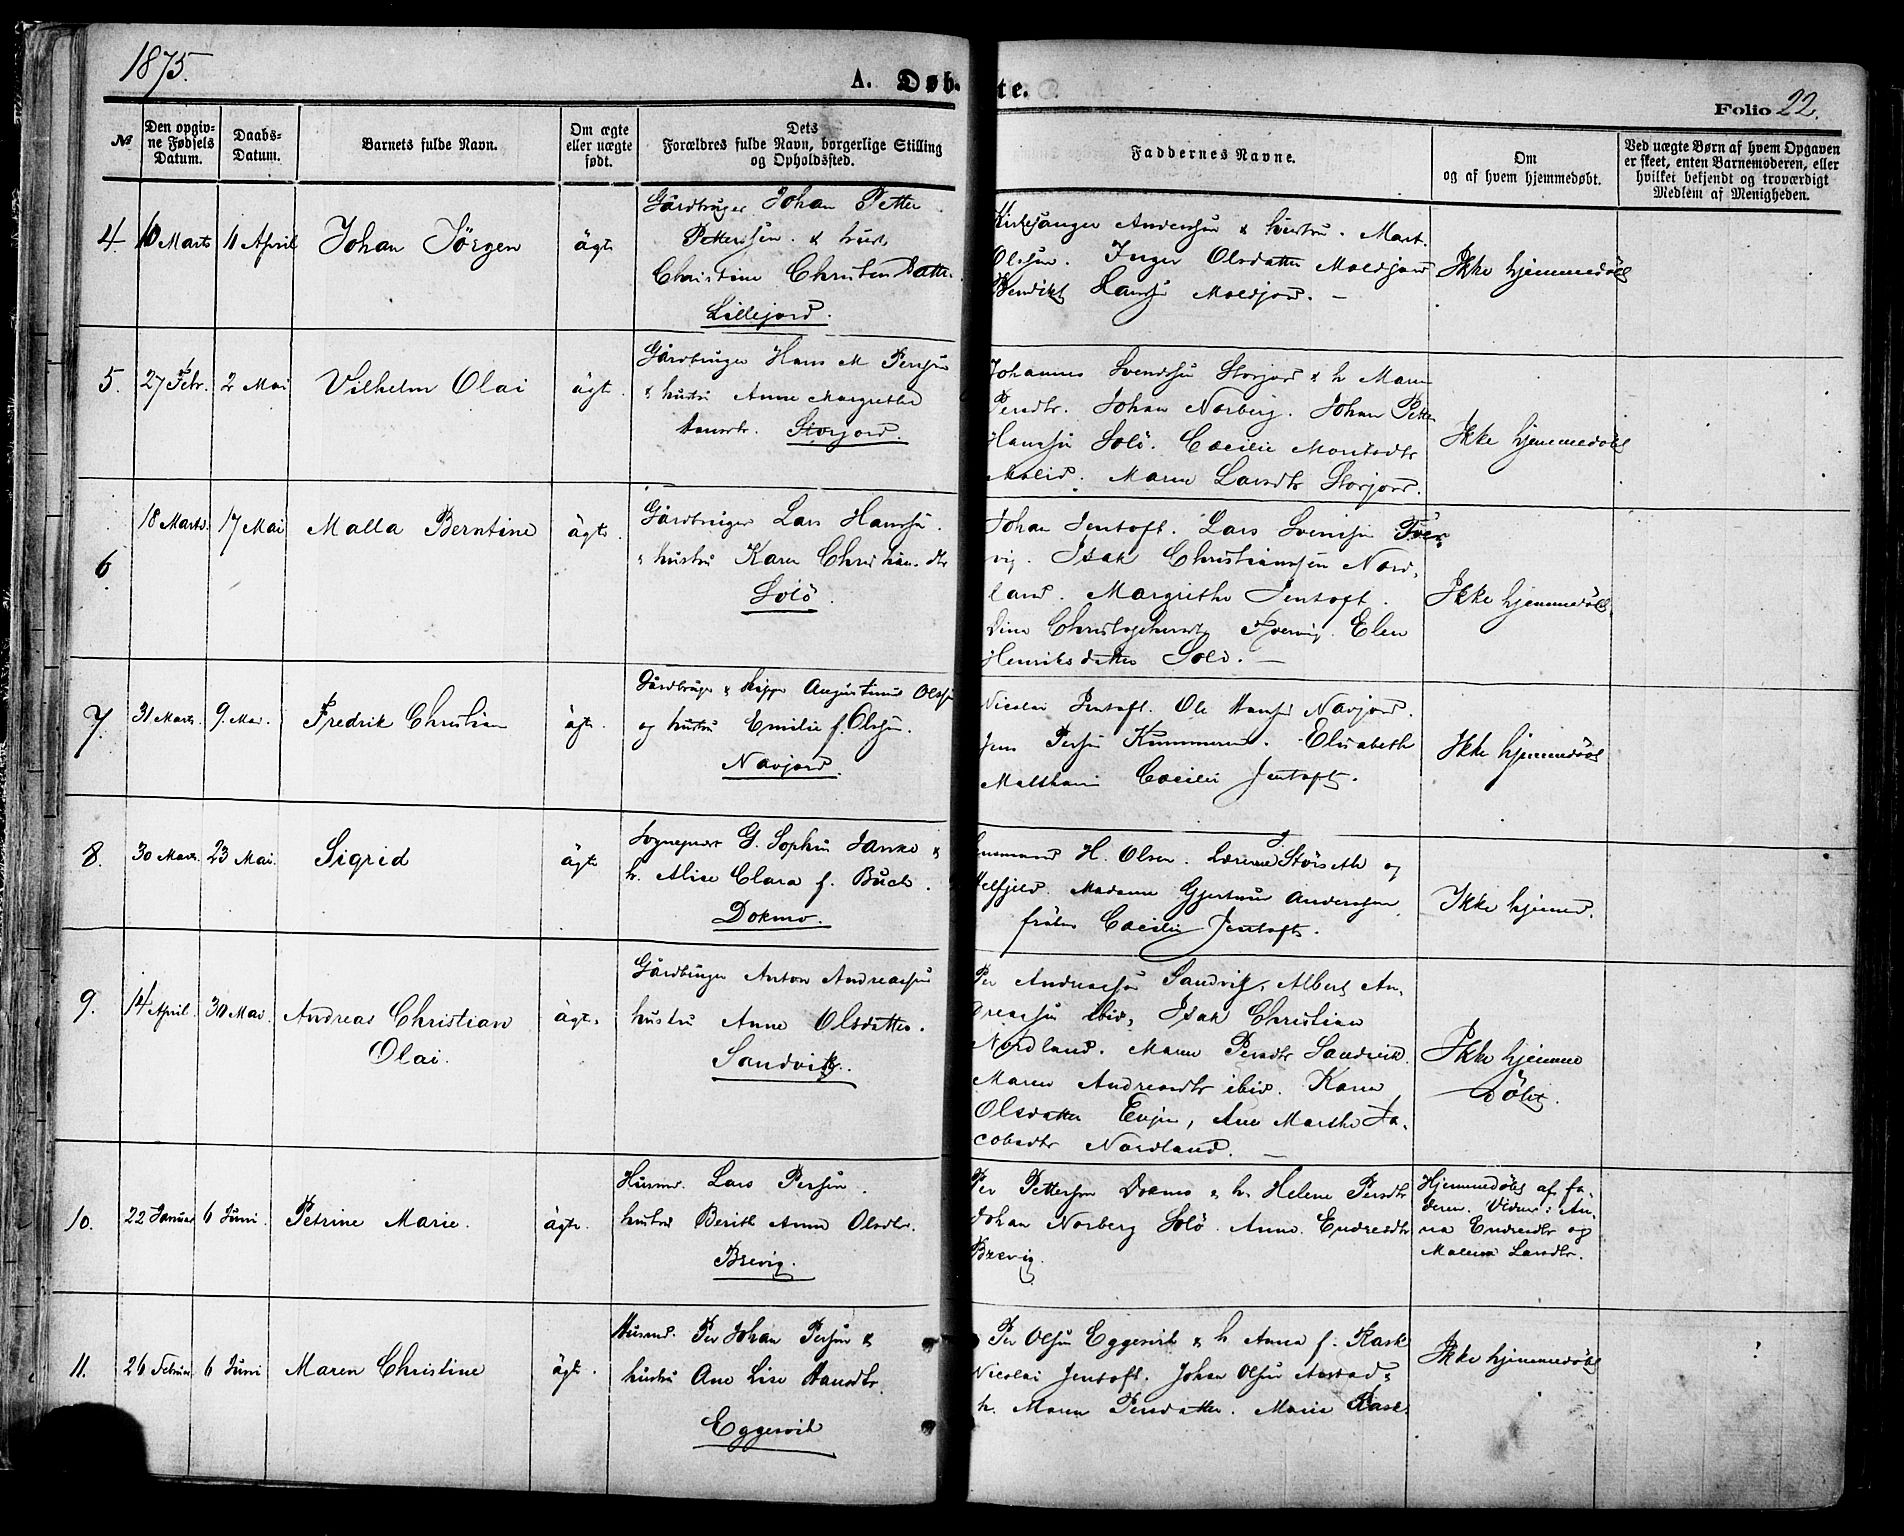 1875.
A. Døbte.
Folio 22.
№
Den opgiv-
ne Fødsels
Datum.
Daabs-
Datum.
Barnets fulde Navn.
Om ægte
eller uægte
født.
Dets
Forældres fulde Navn, borgerlige Stilling
og Opholdssted.
Faddernes Navne.
Om
og af hvem hjemmedøbt.
Ved uægte Børn af hvem Opgaven
er skeet, enten Barnemoderen, eller
hvilket bekjendt og troværdigt
Medlem af Menigheden.
4 10 Marts 11 April Johan Jörgen ägte
Gårdbruger Johan Petter
Pettersen. & hust.
Christine Christendatter
Lillejord.
Kirkesånger Anderssen & hustru. Mart.
Olssen. Inger Olsdatter Moldjord
Bendikt Hanssen Moldjord. —
Ikke hjemmedöbt
5. 27 Febr. 2 Mai Vilhelm Olai ägt.
Gårdbruger Hans M Perssen
& hustru Anne Margrethe
Hansdtr. Storjord.
Johannes Svendssen Storjord & h Maren
Persdtr. Johan Norberg. Johan Petter
Hanssen Solö. Cæcilie Moritsdtr
Molid. Maren Larsdtr Storjord.
Ikke hjemmedöbt
6 18 Marts. 17 Mai Malla Berntine ägte
Gårdbruger Lars Hanssen.
& hustru Karen Christian. dtr
Solö.
Johan Jentoft. Lars Svenssen Tver-
vig. Isak Christianssen Nord-
land. Margrethe Jentoft.
Dina Christophersdtr Tvervig. Elen
Henriksdatter Solö. —
Ikke hjemmedöbt
7. 31 Marts. 9. Mai. Fredrik Christian ägt.
Gårdbruger & skipper Augustinus Olssen
og hustru Emilie f. Olssen.
Navjord.
Nicolai Jentoft. Ole Hanssen Navjord.
Jens Perssen Kummeren. Elisabeth
Cæcilie Jentoft.
Ikke hjemmedöbt
8. 30 Marts. 23 Mai. Sigrid ägte
Sognepræst G. Sophus Janke &
h. Alise Clara f. Buch.
Dokmo.
H. Olsen. Lærerne J. Störseth og
Madame Gjertrue Anderssen
frölen Cæcilie Jentoft.
Ikke hjemmed.
9. 14 April. 30 Mai. Andreas Christian
Olai. ägte.
Gårdbruger Anton Andreassen
hustru Anne Olsdatter.
Sandvik.
Per Andreassen Sandvik, Albert An-
dreassen ibid, Isak Christian
Nordland. Maren Persdtr Sandvik.
Maren Andreasdtr ibid. Karen
Olsdatter Evjen, Ane Marthe Ja-
cobsdtr Nordland. —
Ikke hjemme
döbt.
10. 22 Januar 6 Juni. Petrine Marie. ägte.
Husmd. Lars Perssen.
hustru Berith Anna Olsdtr.
Brevig.
Per Petterssen Dokmo & h. Helene Persdtr
Johan Norberg Solö. Anne Endresdtr
Brevig.
Hjemmedöbt af fa-
deren. Vidner: An-
na Endresdtr og
Malena Larsdtr.
11. 26 Februar 6 Juni Maren Christine ägte.
Husmd. Per Johan Perssen &
hustru Ane Lise Hansdtr.
Eggesvik
Per Olssen Eggesvik & h Anna f. Rask
Nicolai Jentoft. Johan Olssen Aastad &
h. Maren Persdatter. Marie Rask.
Ikke hjemmedöbt